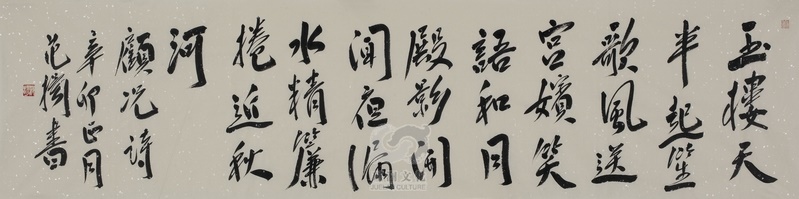 玉樓天
半起笙
歌風送
宮嬪笑
語和月
殿影開
聞夜漏
水精簾
捲近秋
河
顧況詩
辛卯正月
范書